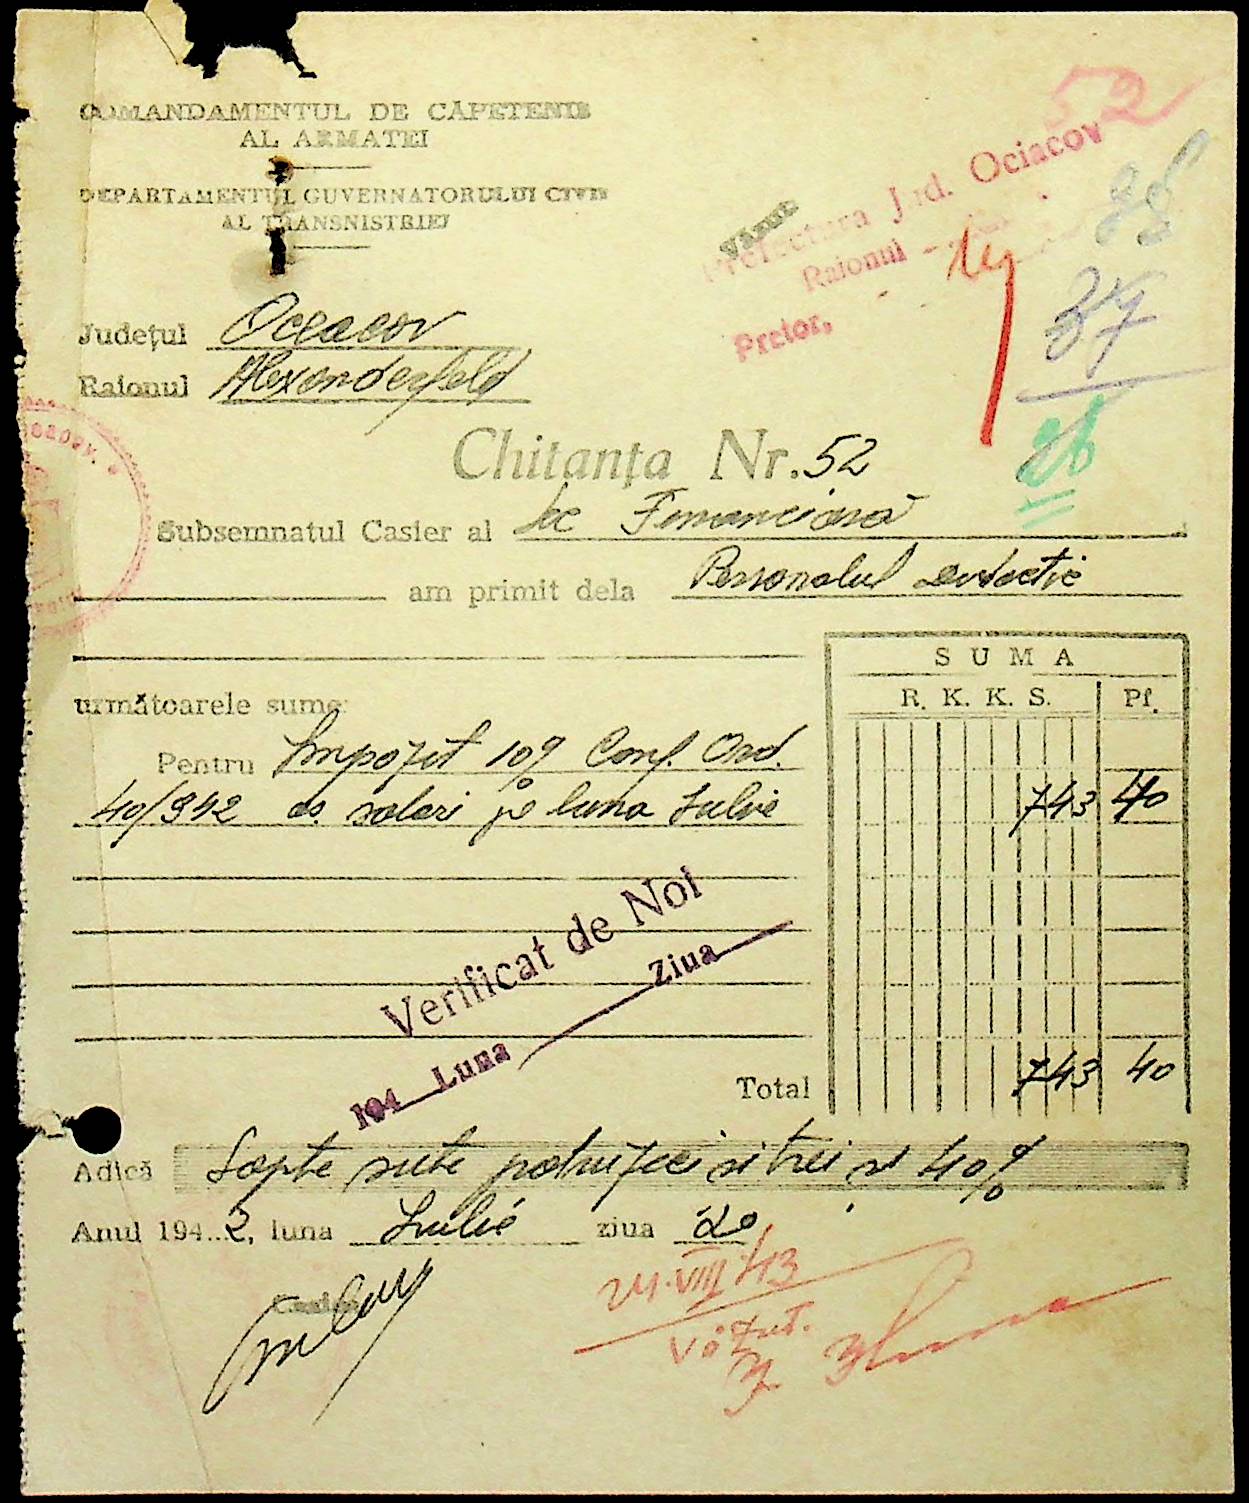 COMANDAMENTUL DE CĂPETENIE
AL ARMATEI
DEPARTAMENTUL GUVERNATORULUI CIVIL
AL TRANSNISTRIEI
52
Văzut
Prefectura Jud. Ociacov
Raionul
Pretor,
37
26
Județul Oceacov
Raionul Alexanderfeld
Chitanța Nr. 52
Subsemnatul Casier al Sec Financiară
am primit dela Personalul didactic
următoarele sume:
SUMA
R. K. K. S. Pf.
Pentru Impozit 10% Conf. Ord.
40/942 salari pe luna Iulie 743 40
Verificat de Noi
194 Luna Ziua
Total 743 40
Adică Șapte sute patruzeci și trei și 40%
Anul 194..2, luna Iulie ziua 20
Casier
24.VIII.43
Văzut.